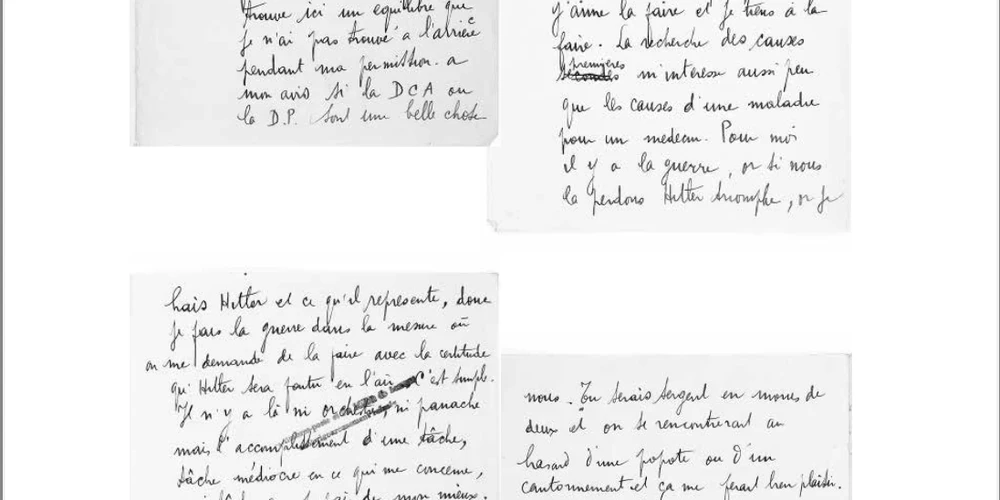 trouve ici un equilibre que
je n'ai pas trouvé a l'arriere
pendant ma permission. a
mon avis si la DCA ou
la D.P. sont une belle chose
j'aime la faire et je tiens à la
faire. La recherche des causes
premières
secondes m'interesse aussi peu
que les causes d'une maladie
pour un medecin. Pour moi
il y a la guerre, or si nous
la perdons Hitler triomphe, or je
hais Hitler et ce qu'il represente, donc
je fais la guerre dans la mesure où
on me demande de la faire avec la certitude
qu' Hitler sera foutu en l'air C'est simple.
Il n'y a là ni orchestre, ni panache
mais l'accomplissement d'une tâche,
tâche médiocre en ce qui me concerne,
de mon mieux.
nous. Tu serais sergent en moins de
deux et on se rencontrerait au
hasard d'une popote ou d'un
cantonnement et ça me ferait bien plaisir.